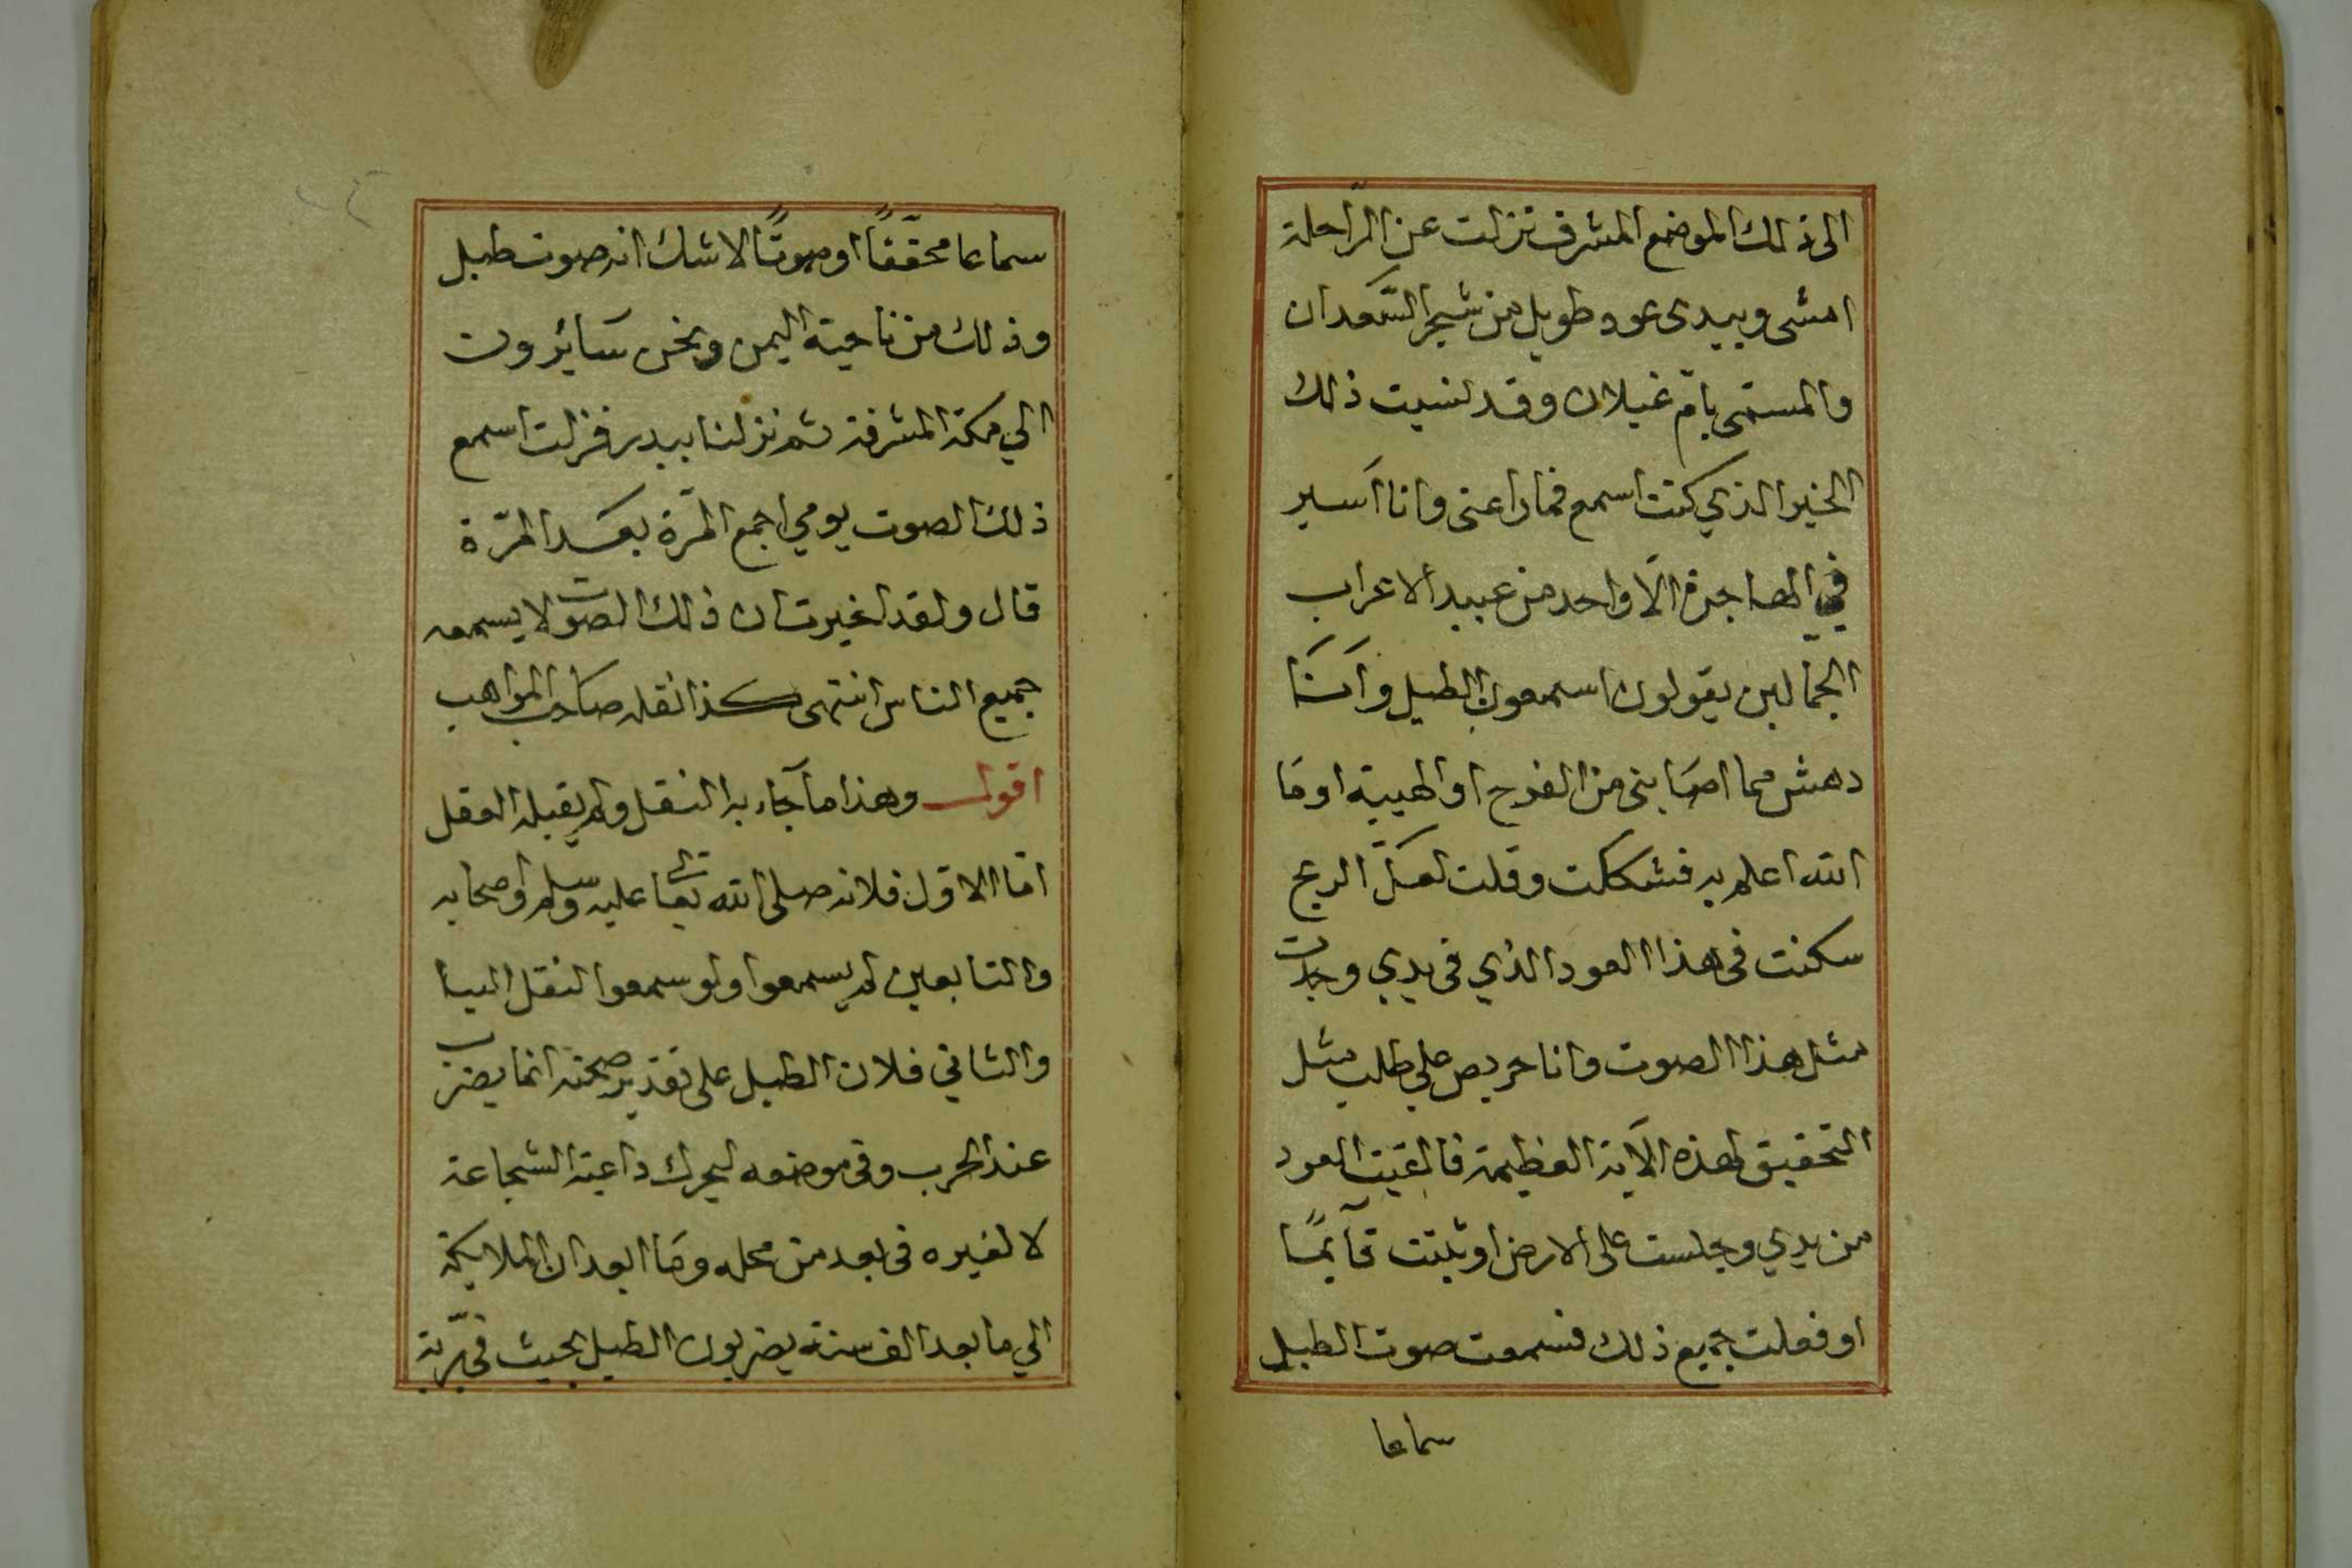 الى ذلك الموضع المشرف نزلت عن الرّاحلة
امشى وبيدى عود طويل من شجر السَّعدان
والمسمّى بامّ غيلان وقد نسيت ذلك
الخبر الذي كنت اسمع فما راعنى وانا اَسير
في الهاجرة الّا واحد من عبيد الاعراب
الجمّالين يقولون اسمعون الطبل واَنَا
دهش مما اصَابنى من الفرح او الهيبة او مَا
الله اعلم به فشككت وقلت لعَلّ الريح
سكنت فى هذا العود الذي فى يدي وجدت
مثل هذا الصوت وانا حريص علي طلب مثل
التحقيق لهذه الآية العظيمة فالقيت العود
من يدي وجلست على الارض او ثبتت قآيمًا
او فعلت جميع ذلك فسمعت صوت الطبل
سماعا
سماعا محقّقًا او صوتًا لا شك انه صوت طبل
وذلك من ناحية اليمن ونحن سَايرون
الي مكة المشرفة ثم نزلنا ببدر فزلت اسمع
ذلك الصوت يومي اجمع المرّة بعَد المرّة
قال ولقد اخبرت ان ذلك الصوت لا يسمعه
جميع الناس انتهى كذا نقله صَاحب المواهب
اقول وهذا ما جَآء به النقل ولم يقبله العقل
امّا الاوّل فلانه صلى الله تعا عليه وسلم واصحابه
والتابعين لم يسمعوا ولو سمعوا لنقل الينا
والثاني فلان الطبل على تقدير صحته انما يضرب
عند الحرب وفى موضعه ليحرك داعية الشجاعة
لا لغيره فى بعد من محله ومَا ابعد ان الملايكة
الي ما بعد الف سنة يضربون الطبل بحيث فى برّية